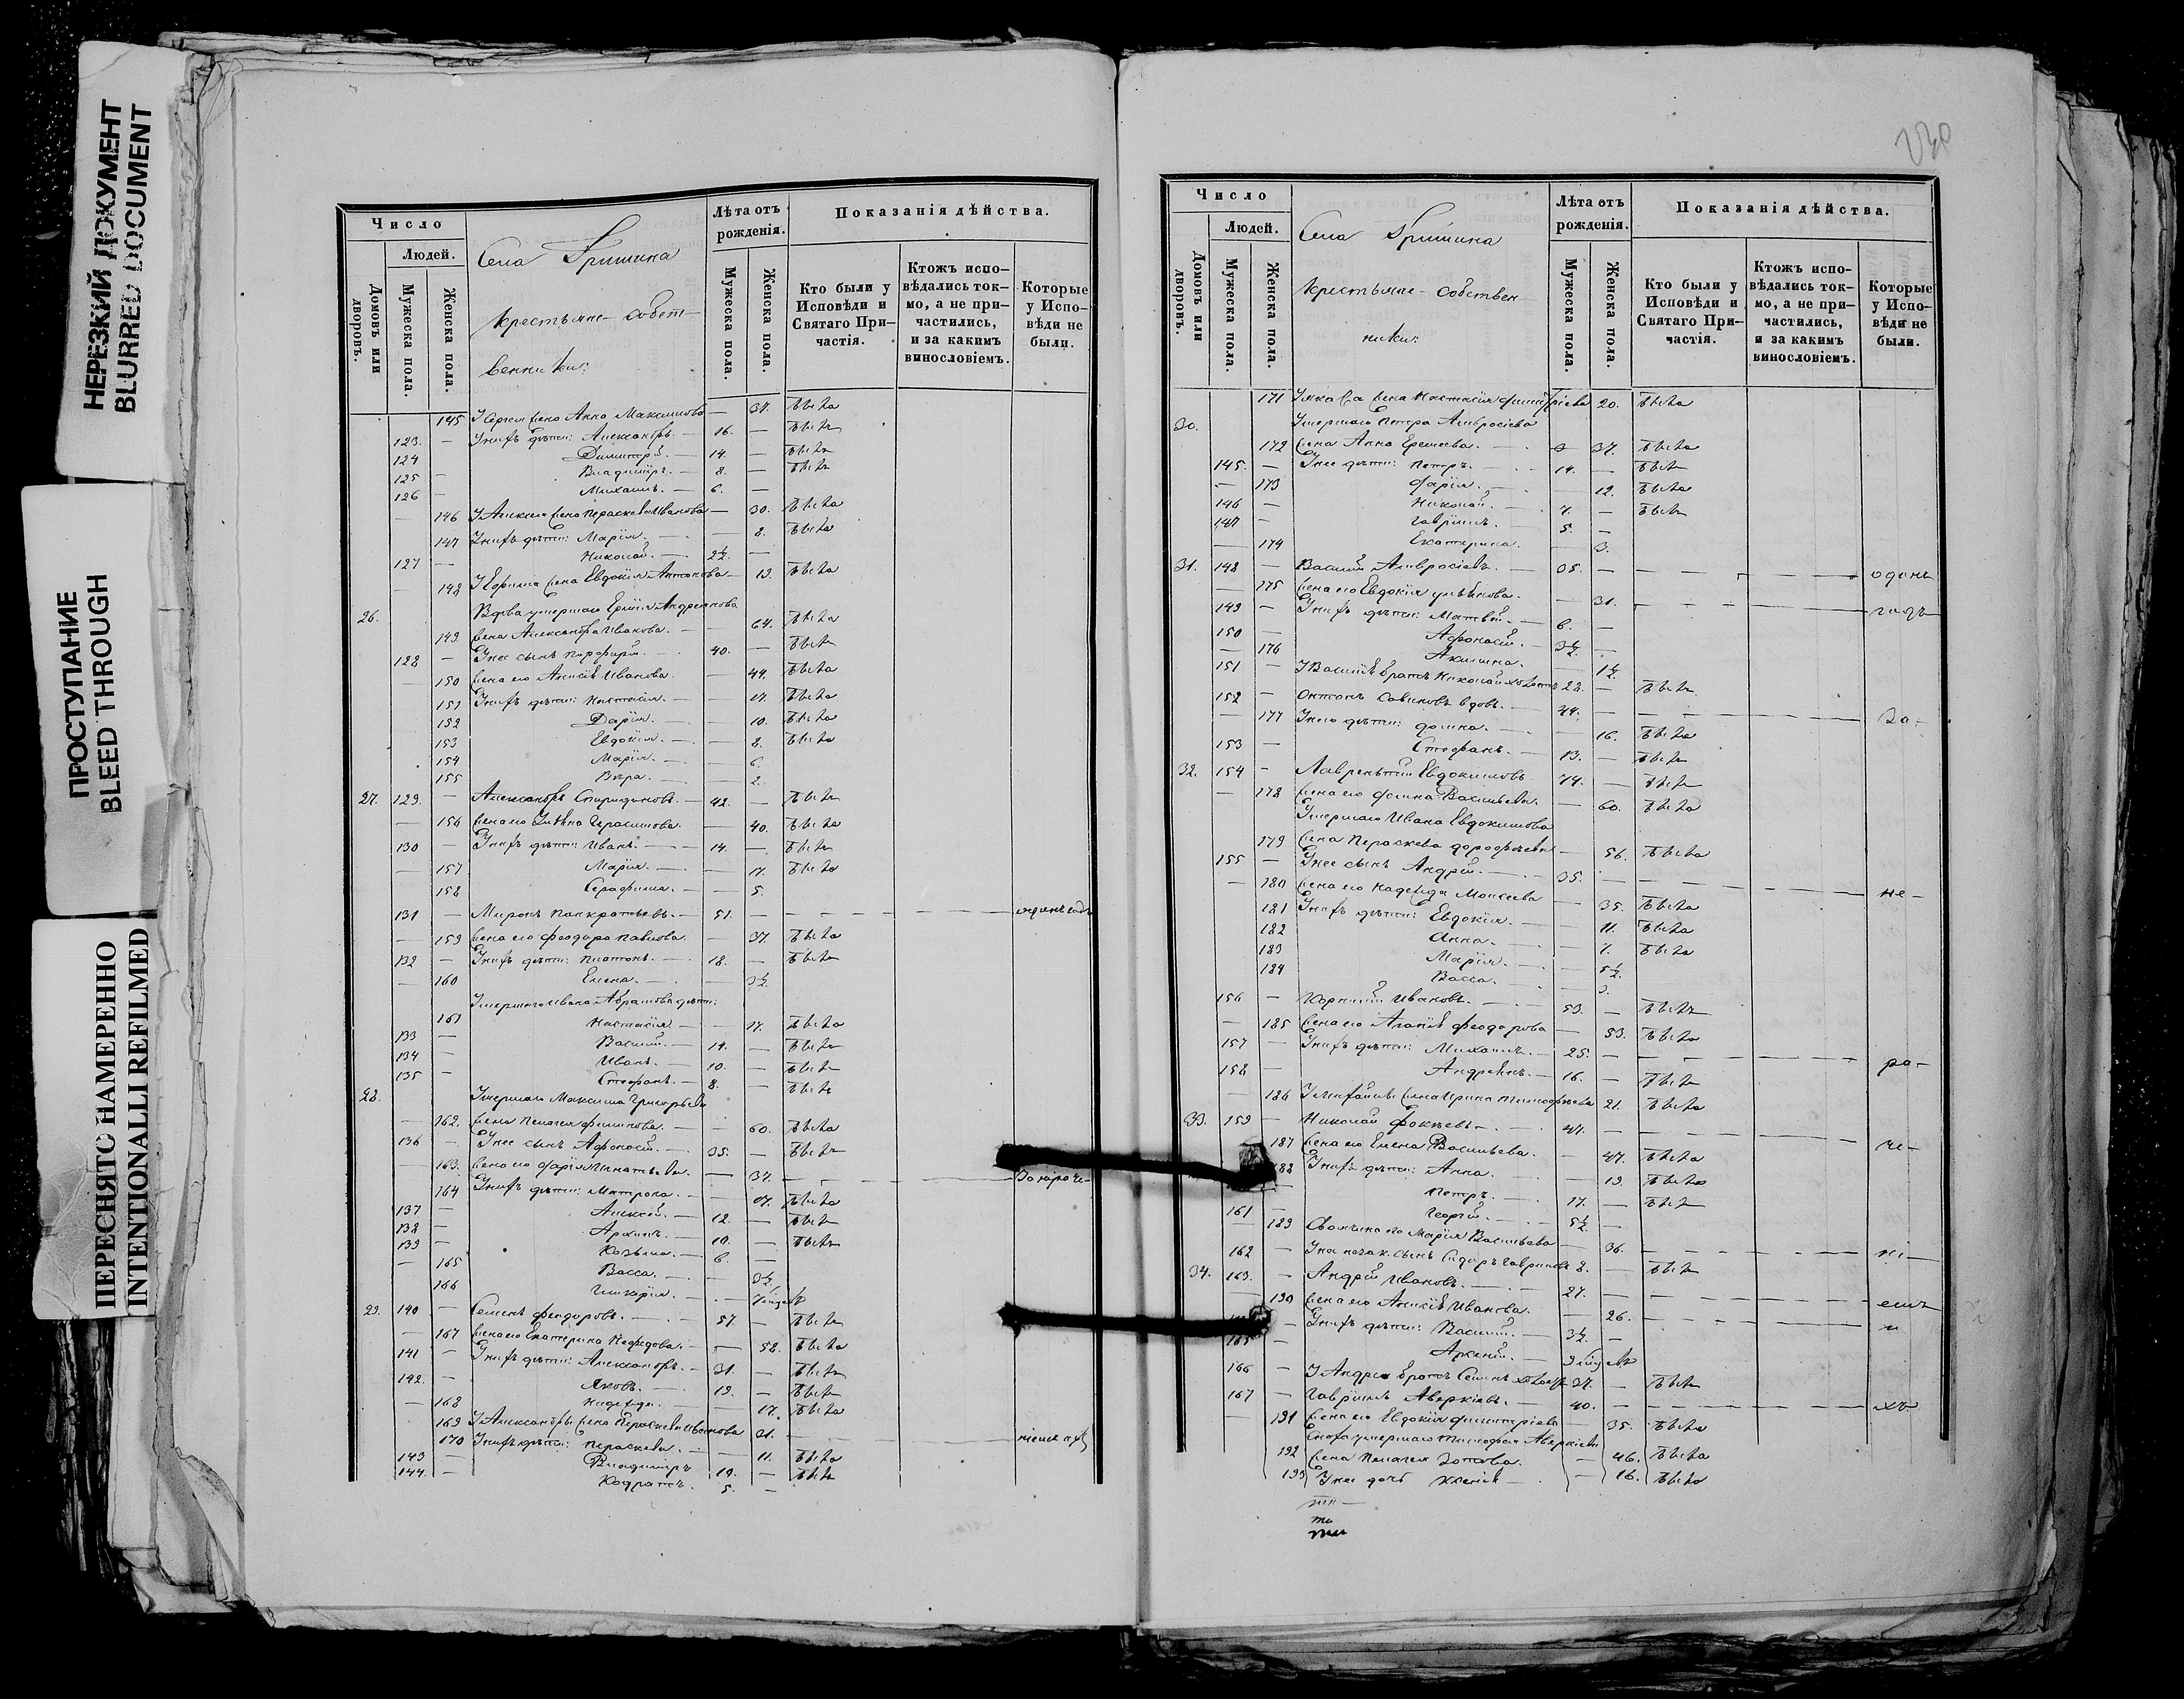 НЕРЕЗКИЙ ДОКУМЕНТ
BLURRED DOCUMENT
ПРОСТУПАНИЕ
BLEED THROUGH
ПЕРЕСНЯТО НАМЕРЕННО
INTENTIONALLI REFILMED
Число
Людей.
Домовъ или дворовъ.
Мужеска пола.
Женска пола.
Села Гришина
Крестьяне-собст-
венники:
Лѣта отъ рожденія.
Мужеска пола.
Женска пола.
Показанія дѣйства.
Кто были у Исповѣди и Святаго При-частія.
Ктожъ испо-вѣдались ток-мо, а не при-частились, и за какимъ винословіемъ.
Которые у Испо-вѣди не были.
145 Сергея жена Анна Максимова — 37. Была
123. — У нихъ дѣти: Александръ. — 16. — Былъ
124 Димитрій. — 14. — Былъ
125 — Владиміръ. — 8. — Былъ
126 — Михаилъ. — 6. —
146 У Алексея жена Параскева Иванова — 30. Была
147 У нихъ дѣти: Марія. — 8. Была
127 — Николай. — 2½. —
148 У Ефима жена Евдокія Антонова — 19. Была
26. Вдова умершаго
149. жена Александра Иванова. — 64. Была
128 — У нее сынъ Порфирій. — 40. — Былъ
150 жена его Анисія Иванова. — 44. Была
151 У нихъ дѣти: Настасія. — 17. Была
152 Дарія. — 10. Была
153 Евдокія. — 8. Была
154 Марія. — 6.
155 Вѣра. — 2.
27. 129. — Александръ Спиридоновъ. — 42. — Былъ
156 жена его Герасимова. — 40. Была
130 — У нихъ дѣти: Иванъ. — 14. — Былъ
157 Марія. — 17. Была
158 Серафима. — 5.
131 — Миронъ Панкратьевъ. — 51. — одинъ годъ
159 жена его Феодора Павлова. — 37. Была
132 — У нихъ дѣти: Платонъ. — 18. — Былъ
160 Елена. — 3½.
Умершаго Ивана Абрамова дѣти:
161 Настасія — 17. Была
133 — Василій. — 14. — Былъ
134 — Иванъ. — 10. — Былъ
135 — Стефанъ. — 8. — Былъ
28. Умершаго Максима Григорьева
162. жена Пелагея Филипова. — 60. Была
136 — У нее сынъ Афонасій. — 35. — Былъ
163. жена его Дарія Игнатьева. — 37.
164 У нихъ дѣти: Матрона. — Была
137 — Алексей. — 12. — Былъ
138 — Архипъ. — 10. — Былъ
139 — Козьма. — 6. —
165 Васса. — 3½
166
29. 140 — Семенъ Феодоровъ. — 57 — Былъ
167 жена его Екатерина — 58. Была
141 — У нихъ дѣти: Александръ. — 31. — Былъ
142. — Яковъ. — 19. — Былъ
168 Надежда. — 17. Была
169 У Александра жена Параскева Иванова 31.
170 У нихъ дѣти: Параскева. — 11. Была
143 — Владиміръ 10. — Былъ
144. — Кодратъ. 5. —
Число
Людей.
Домовъ или дворовъ.
Мужеска пола.
Женска пола.
Села Гришина
Крестьяне-собствен-
ники:
Лѣта отъ рожденія.
Мужеска пола.
Женска пола.
Показанія дѣйства.
Кто были у Исповѣди и Святаго При-частія.
Ктожъ испо-вѣдались ток-мо, а не при-частились, и за какимъ винословіемъ.
Которые у Испо-вѣди не были.
171 У Якова жена Настасія Димитріева 20. Была
30. Умершаго Петра Амвросіева
172 жена Анна Еремеева. — 37. Была
145. — У нее дѣти: Петръ. 14. — Былъ
— 173 Дарія. — 12. Была
146 — Николай. 7. — Былъ
147 — Гавріилъ. 5. —
— 174 Екатерина. 3.
31. 148 — Василій Амвросіевъ. — 35. — одинъ
175 жена его Евдокія — 31. годъ
149 — У нихъ дѣти: Матвей. — 6. —
150 — Афонасій. — 3½. —
— 176 Акилина. — 1½.
151 — У Василія братъ Николай холостъ 22. — Былъ
152 — Антонъ вдовъ. — 44. — За-
— 177 У него дѣти: Домна. — 16. Была
153 — Стефанъ. — 13. — Былъ
32. 154 — Лаврентій Евдокимовъ. 74. — Былъ
— 178 жена его Фекла Васильева. — 60. Была
Умершаго Ивана Евдокимова
179 жена Параскева Дорофеева — 56. Была
155 — У нее сынъ Андрей. — 35. — не-
— 180 жена его Надежда Моисеева — 35. Была
181 У нихъ дѣти: Евдокія. — 11. Была
182 Анна. — 7. Была
183 Марія. — 5½.
184 Васса. — 3.
156 — Корнилій Ивановъ. — 53. — Былъ
— 185 жена его Агапія Феодорова — 53. Была
157 — У нихъ дѣти: Михаилъ. — 25. — ра-
158 — Андреянъ. — 16. — Былъ
186 У Михаила жена Ирина Тимофеева 21. Была
33. 159 — Николай Фокеевъ. — 47. — че-
187 жена его Елена Васильева. — 47. Была
188 У нихъ дѣти: Анна. — 19. Была
Петръ. — 17. — Былъ
161 — Георгій. — 5½. —
— 189 Марія Васильева 36. ні-
162 — У ней незак. сынъ Сидоръ Гавриловъ 8. — Былъ
34. 163. — Андрей Ивановъ. — 27. — емъ
190 жена его Анисія Иванова. — 26. и
— У нихъ дѣти: Василій. — 3½. —
165 Арсеній. —
166 — У Андрея братъ Семенъ холостъ 27. — Былъ
167 — Гавріилъ Аверкіевъ. — 40. — ихъ
— 191 жена его Евдокія Димитріева — 35. Была
Сноха умершаго Тимофея Аверкіева
192 жена Пелагея Зотова. — 46. Была
193 У нее дочь Ксенія — 16. Была